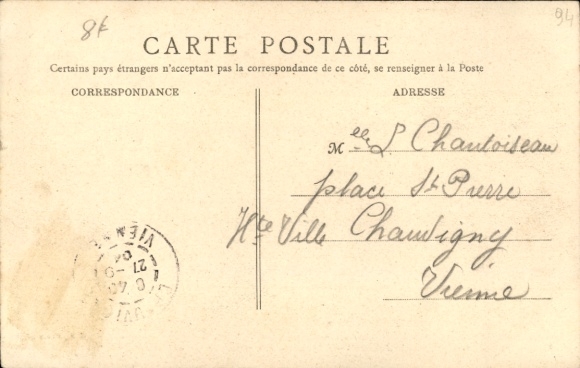 8f
94
CARTE POSTALE
Certains pays étrangers n'acceptant pas la correspondance de ce côté, se renseigner à la Poste
CORRESPONDANCE
ADRESSE
Melle L Chantoiseau
place St Pierre
Hte Ville Chauvigny
Vienne
VIENNE
27